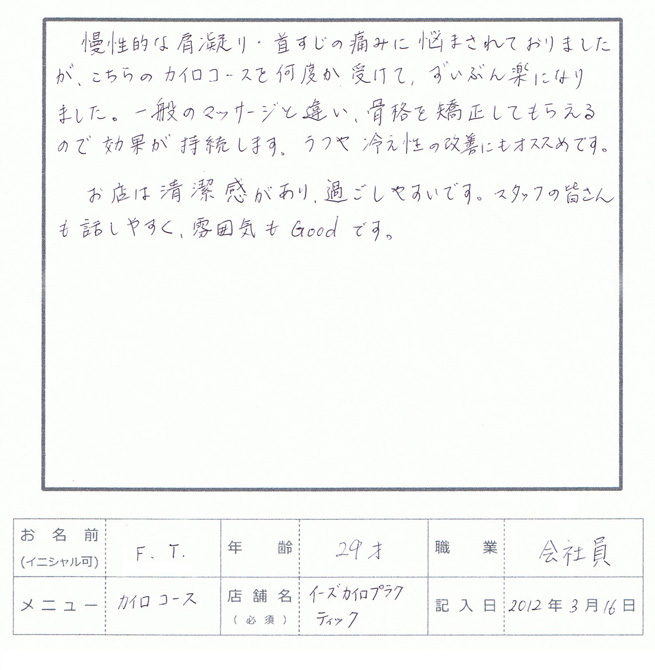 慢性的な肩凝り・首すじの痛みに悩まされておりました
が、こちらのカイロコースを何度か受けて、ずいぶん楽になり
ました。一般のマッサージと違い、骨格を矯正してもらえる
ので効果が持続します。うつや冷え性の改善にもオススメです。
お店は清潔感があり、過ごしやすいです。スタッフの皆さん
も話しやすく、雰囲気もGoodです。
お名前 F. T. 年齢 29才 職業 会社員
(イニシャル可)
メニュー カイロコース 店舗名 イーズカイロプラク 記入日 2012年3月16日
(必須) ティック